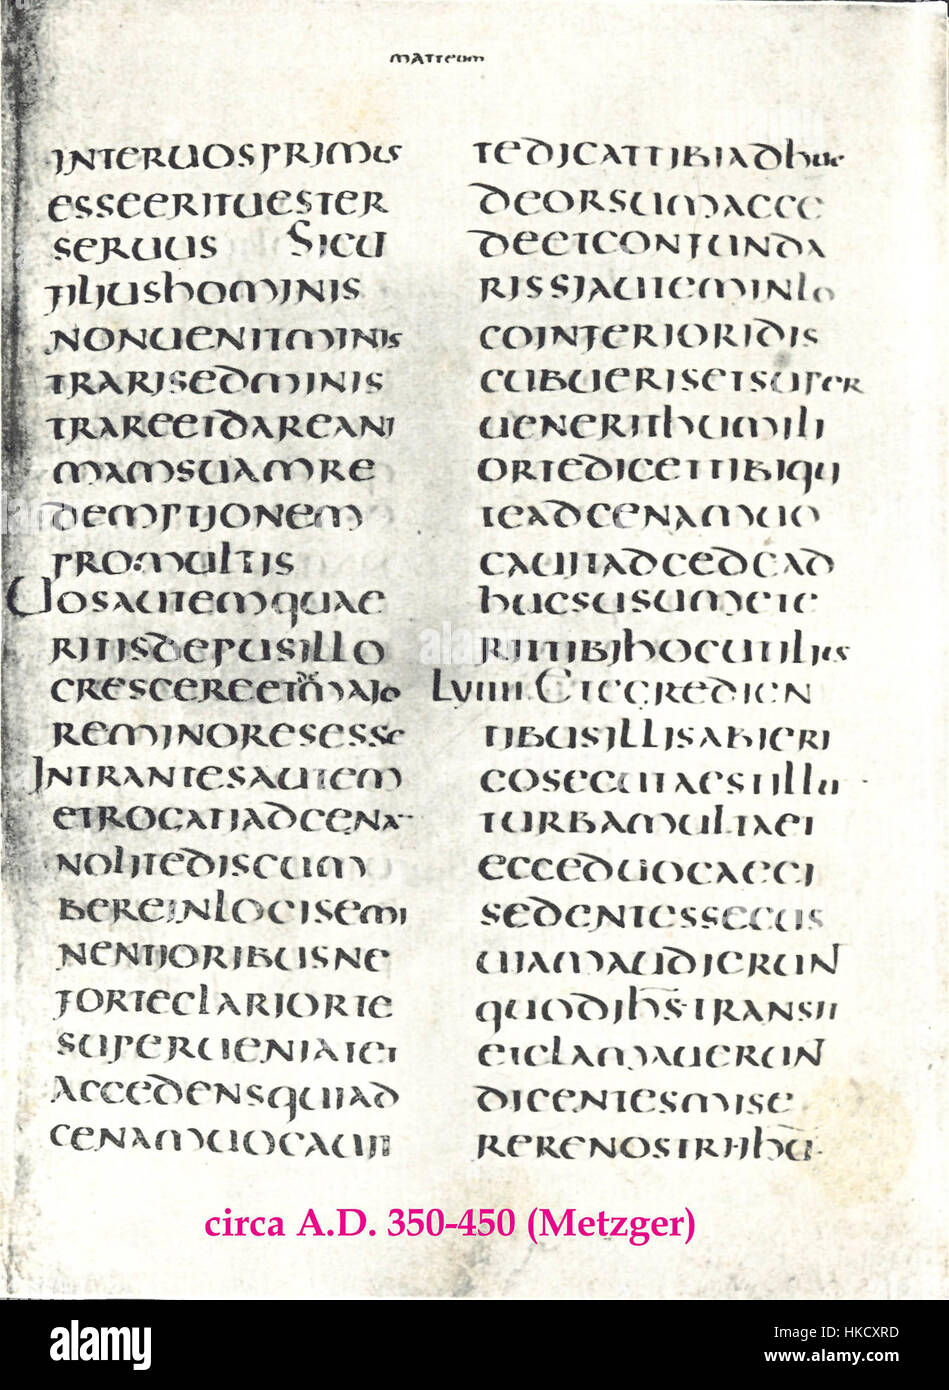 matteum
INTERUOSPRIMIS
ESSEERITUESTER
SERUUS SICU
FILIUSHOMINIS
NONUENITMINIS
TRARISEDMINIS
TRAREETDAREANI
MAMSUAMRE
DEMPTIONEM
PROMULTIS
UOSAUTEMQUAE
RITISDEPUSILLO
CRESCEREETMAIO
REMINORESESSE
INTRANTESAUTEM
ETROGATIADCENA
NOLITEDISCUM
BEREINLOCISEMI
NENTIORIBUSNE
FORTECLARIORTE
SUPERUENIATET
ACCEDENSQUIAD
CENAMUOCAUIT
TEDICATTIBIADHUC
DEORSUMACCE
DEETCONFUNDA
RISSIAUTEMINLO
COINFERIORIDIS
CUBUERISETSUPER
UENERITHUMILI
ORTEDICETTIBIQUI
TEADCENAMUO
CAUITADCEDCAD
HUCSUSUMETE
RITTIBIHOCUTILIUS
LVIIII ETEGREDIEN
TIBUSILLISABIERI
COSECUTAESTILLU
TURBAMULTAEI
ECCEDUOCAECI
SEDENTESSECUS
UIAMAUDIERUN
QUODIHS·TRANSII
ETCLAMAUERUN
DICENTESMISE
RERENOSTRIHU·
circa A.D. 350-450 (Metzger)
alamy
alamy
Image ID: HKCXRD
www.alamy.com